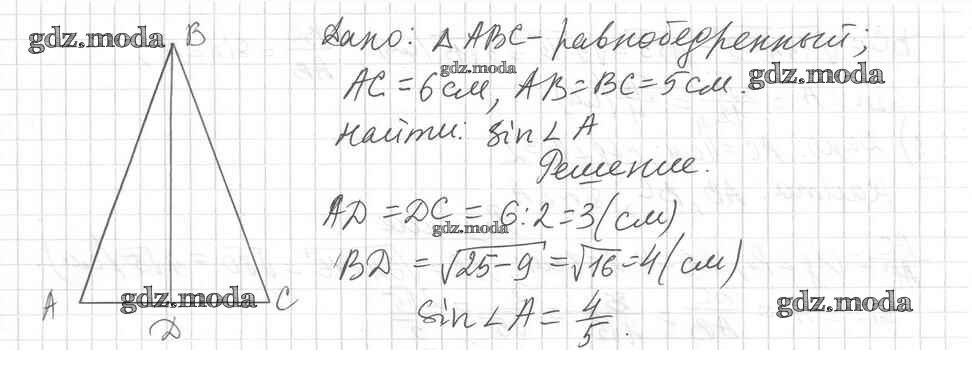 gdz.moda
B
Дано: △ ABC - равнобедренный;
gdz.moda
gdz.moda
AC = 6 см, AB = BC = 5 см.
Найти: sin∠A
Решение.
AD = DC = 6:2 = 3 (см)
gdz.moda
BD = √25-9 = √16 = 4 (см)
A
gdz.moda
C
D
sin∠A = 4/5.
gdz.moda